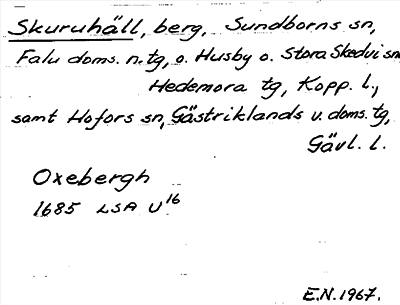 Skuruhäll, berg, Sundborns sn,
Falu doms. n. tg, o. Husby o. Stora Skedvi sn
Hedemora tg, Kopp. l.,
samt Hofors sn, Gästriklands v. doms. tg,
Gävl. l.
Oxebergh
1685 LSA U16
E.N. 1967.